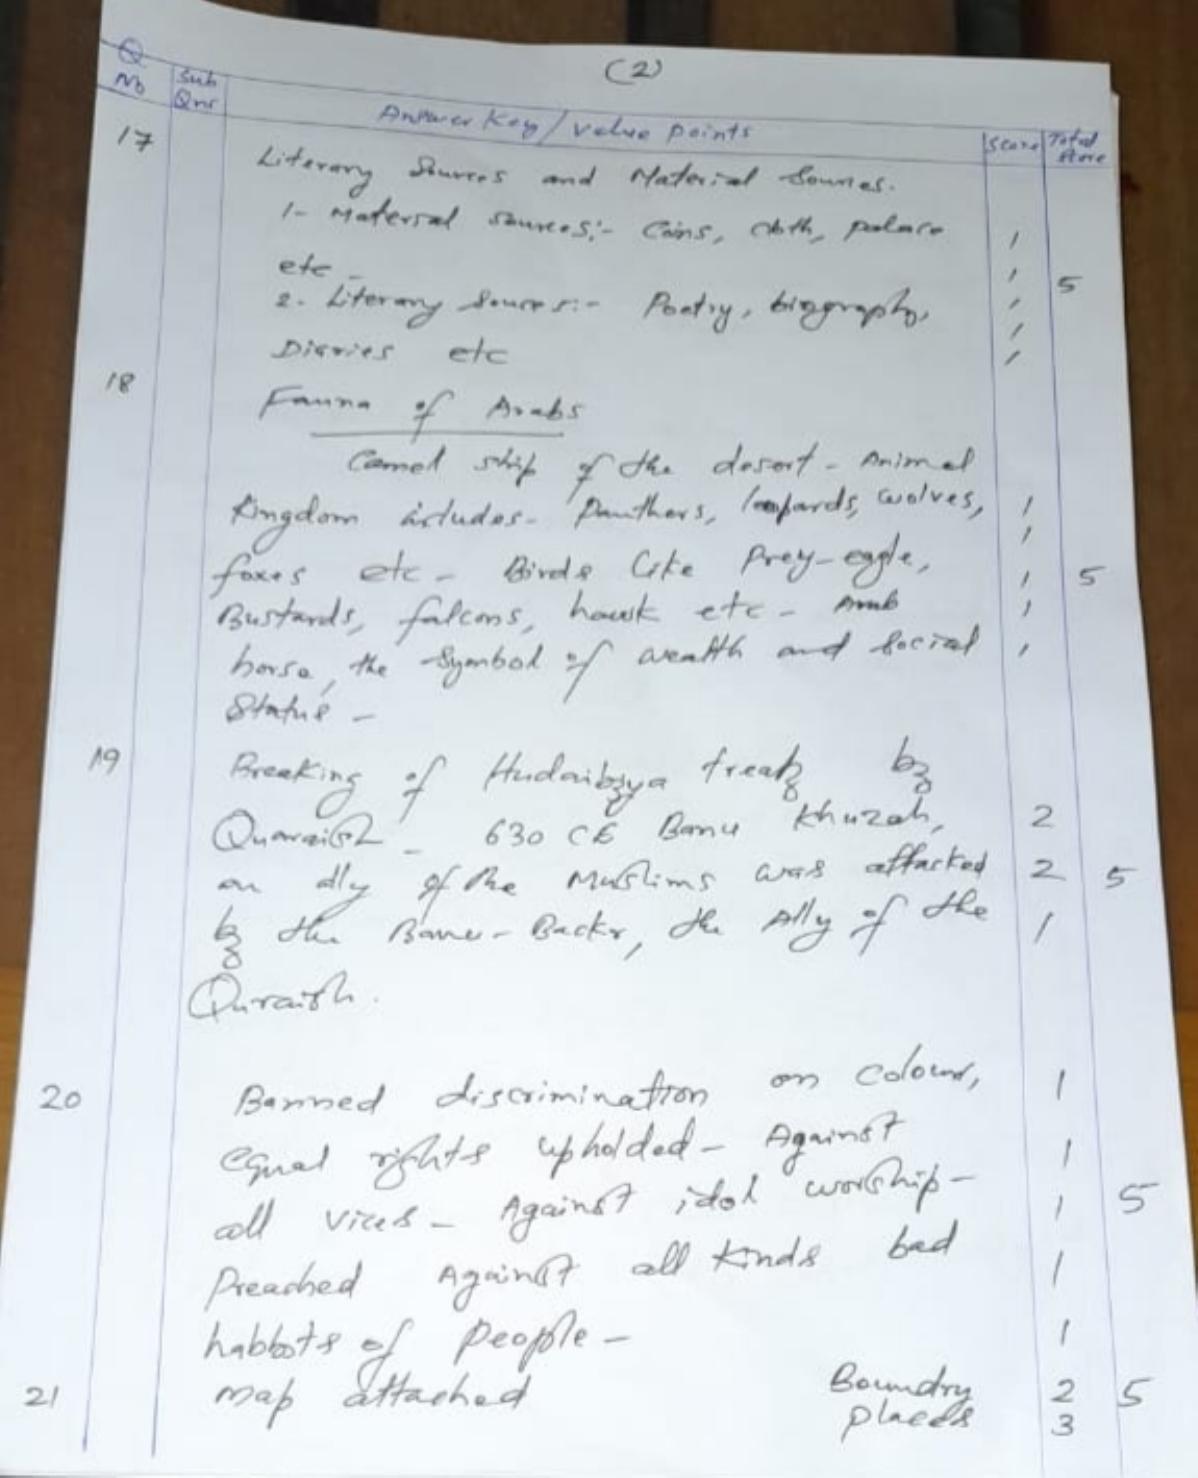 (2)
Q No Sub Qns Answer Key / value points Score Total score
17 Literary Sources and Material Sources.
1- Material sources:- Coins, cloth, palace 1
etc - 1 5
2- Literary Sources:- Poetry, biography, 1
Diaries etc 1 1
18 Fauna of Arabs
Camel ship of the desert - Animal
Kingdom includes- Panthers, leopards, wolves, 1 1
foxes etc - Birds like Prey-eagle, 1 5
Bustards, falcons, hawk etc - Arab 1
horse, the symbol of wealth and social 1
Status -
19 Breaking of Hudaibiya treaty by
Quaraish - 630 CE Banu Khuzah, 2
an ally of the Muslims was attacked 2 5
by the Banu-Backr, the Ally of the 1
Quraish.
20 Banned discrimination on colour, 1
equal rights upholded - Against 1
all vices - Against idol worship - 1 5
Preached Against all kinds bad 1
habbots of people - 1
21 Map attached Boundry 2 5
places 3